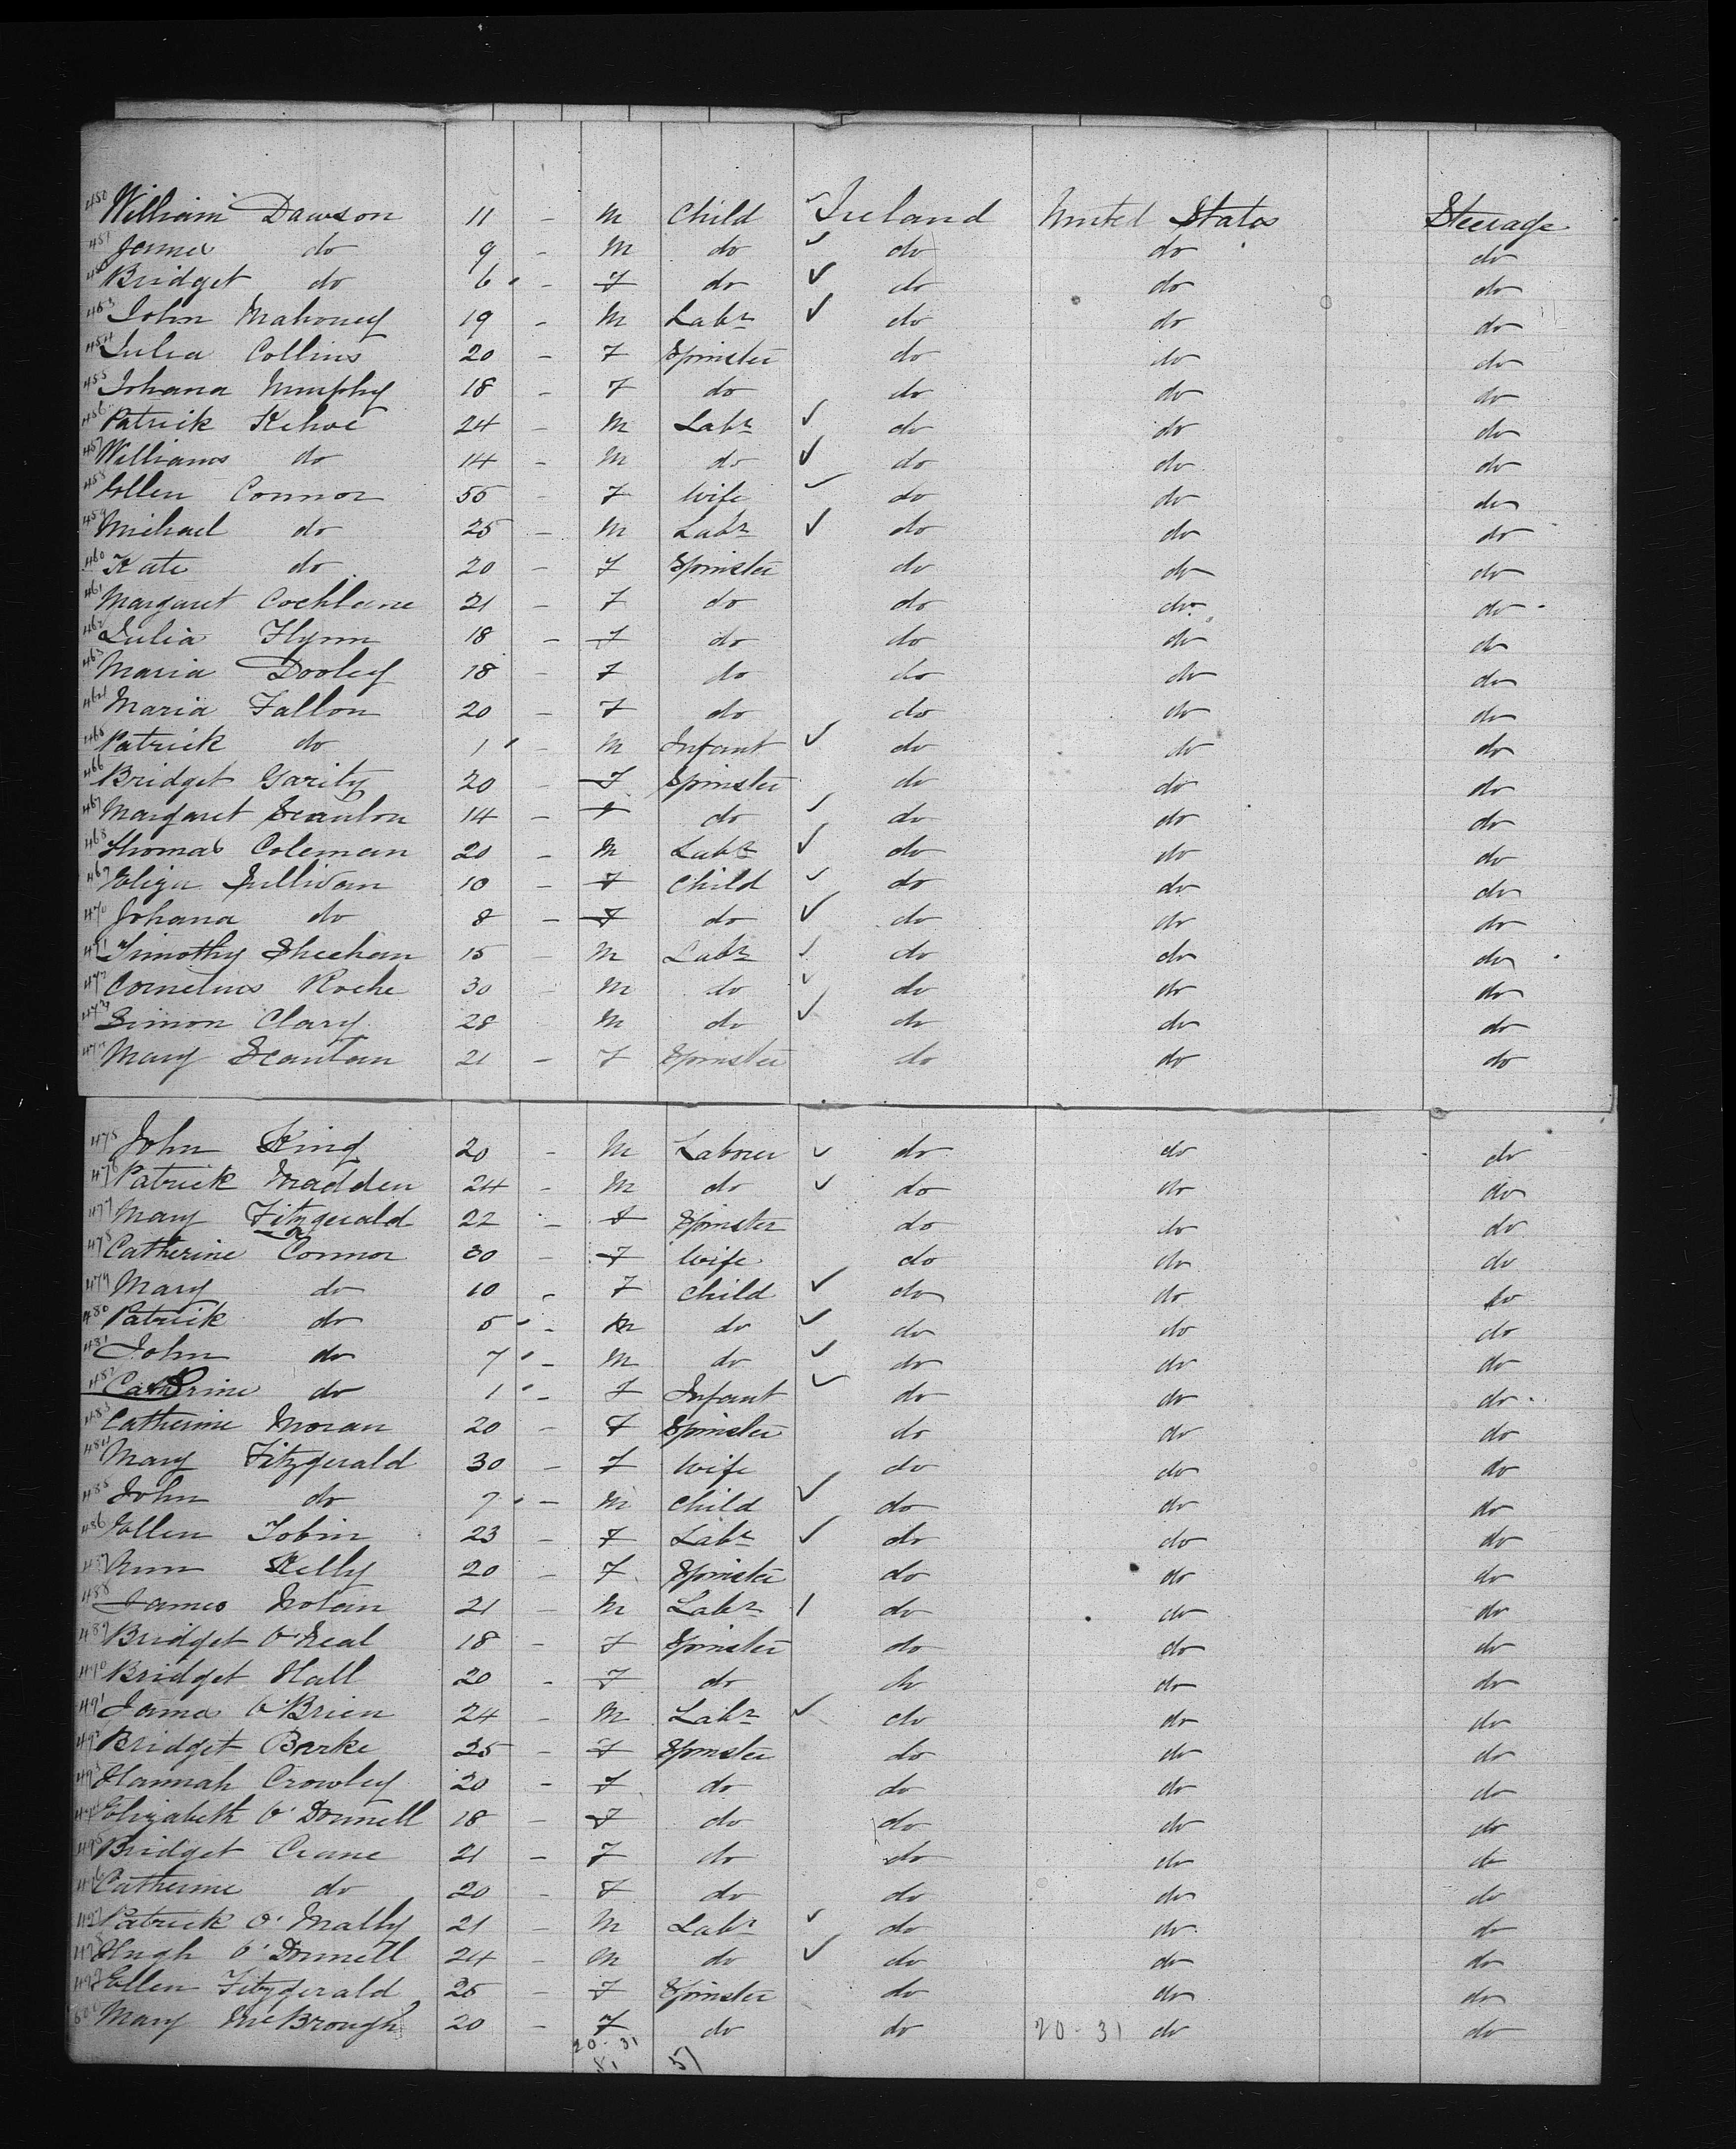 450 William Dawson 11 - M Child ✓ Ireland United States Steerage
451 James do 9 - M do ✓ do do do
452 Bridget do 6 - F do ✓ do do do
453 John Mahoney 19 - M Labr ✓ do do do
454 Julia Collins 20 - F Spinster do do do
455 Johana Murphy 18 - F do do do do
456 Patrick Kehoe 24 - M Labr ✓ do do do
457 Williams do 14 - M do ✓ do do do
458 Ellen Connor 55 - F Wife ✓ do do do
459 Michael do 25 - M Labr ✓ do do do
460 Kate do 20 - F Spinster do do do
461 Margaret Cochlane 21 - F do do do do
462 Julia Flynn 18 - F do do do do
463 Maria Dooley 18 - F do do do do
464 Maria Fallon 20 - F do do do do
465 Patrick do 1 - M Infant ✓ do do do
466 Bridget Garity 20 - F Spinster do do do
467 Margaret Scanlon 14 - F do ✓ do do do
468 Thomas Coleman 20 - M Labr ✓ do do do
469 Eliza Sullivan 10 - F Child ✓ do do do
470 Johana do 8 - F do ✓ do do do
471 Timothy Sheehan 15 - M Labr ✓ do do do
472 Cornelius Roche 30 - M do ✓ do do do
473 Simon Clary 28 M do ✓ do do do
474 Mary Scanlan 21 - F Spinster do do do
475 John King 20 - M Laborer ✓ do do do
476 Patrick Madden 24 - M do ✓ do do do
477 Mary Fitzgerald 22 - F Spinster do do do
478 Catherine Connor 30 - F Wife do do do
479 Mary do 10 - F Child ✓ do do do
480 Patrick do 5 - M do ✓ do do do
481 John do 7 - M do ✓ do do do
482 Catherine do 1 - F Infant ✓ do do do
483 Catherine Moran 20 - F Spinster do do do
484 Mary Fitzgerald 30 - F Wife do do do
485 John do 7 - M Child ✓ do do do
486 Ellen Tobin 23 - F Labr ✓ do do do
487 Ann Kelly 20 - F Spinster do do do
488 James Nolan 21 - M Labr / do do do
489 Bridget O'Neal 18 - F Spinster do do do
490 Bridget Hall 20 - F do do do do
491 James O'Brien 24 - M Labr ✓ do do do
492 Bridget Burke 25 - F Spinster do do do
493 Hannah Crowley 20 - F do do do do
494 Elizabeth O'Donnell 18 - F do do do do
495 Bridget Crane 21 - F do do do do
496 Catherine do 20 - F do do do do
497 Patrick O'Mally 21 - M Labr ✓ do do do
498 Hugh O'Donnell 24 - M do ✓ do do do
499 Ellen Fitzgerald 25 - F Spinster do do do
500 Mary McBrough 20 - F do do 20-31 do do
20-31
51